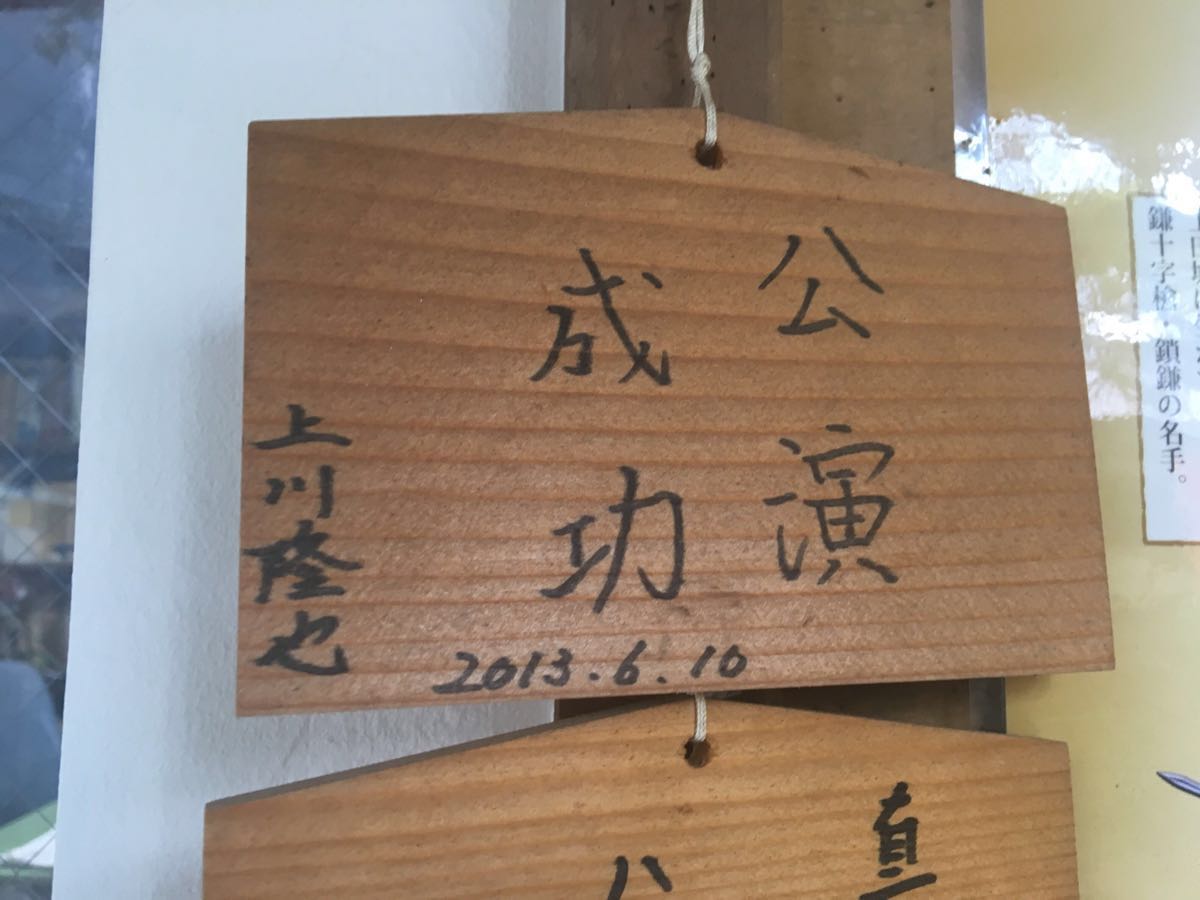 公演
成功
上川隆也
2013.6.10
鎌十字槍
鎖鎌の名手。